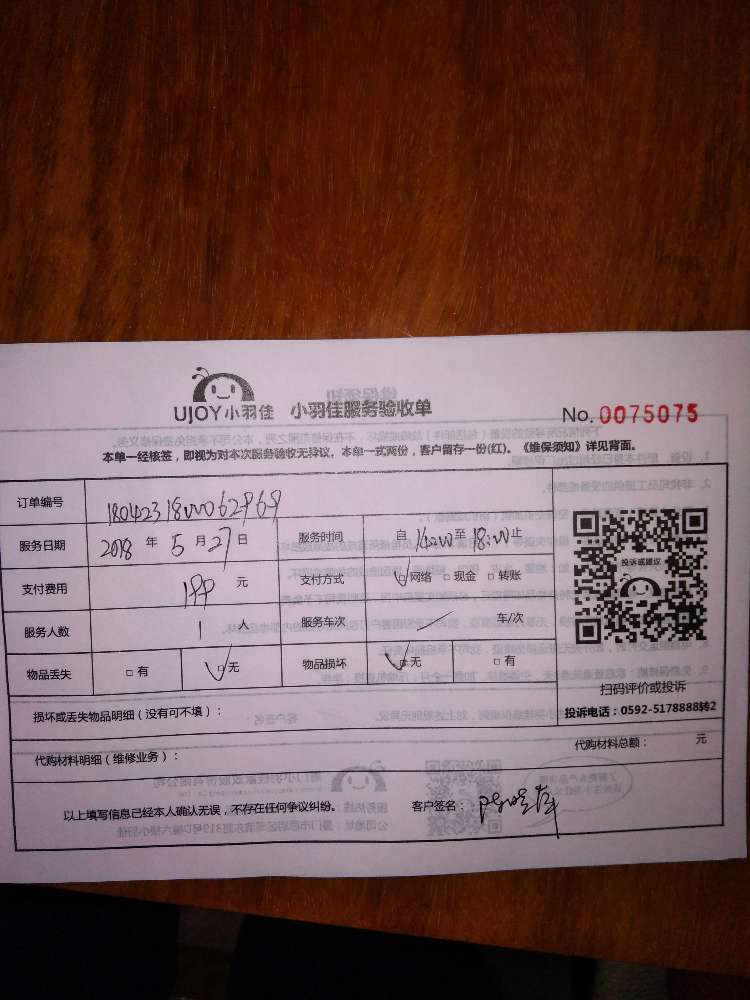 UJOY小羽佳 小羽佳服务验收单 No. 0075075
本单一经核签，即视为对本次服务验收无异议。本单一式两份，客户留存一份(红)。《维保须知》详见背面。
订单编号
服务日期 2018 年 5 月 27 日 服务时间 自 至 18:00 止
支付费用 199 元 支付方式 网络 □ 现金 □ 转账
服务人数 1 人 服务车次 / 车/次
物品丢失 □ 有 ✓ 无 物品损坏 ✓ 无 □ 有
投诉或建议
扫码评价或投诉
投诉电话：0592-5178888转2
损坏或丢失物品明细（没有可不填）：
代购材料明细（维修业务）： 代购材料总额： 元
以上填写信息已经本人确认无误，不存在任何争议纠纷。 客户签名：